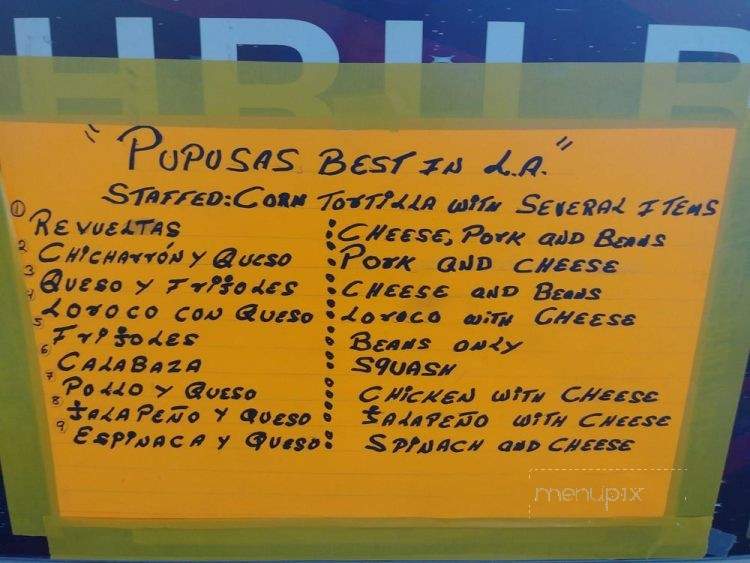 HRU B
"PUPUSAS BEST IN L.A."
STAFFED: CORN TORTILLA WITH SEVERAL ITEMS
1 REVUELTAS : CHEESE, PORK AND BEANS
2 CHICHARRÓN Y QUESO : PORK AND CHEESE
3 QUESO Y FRIJOLES : CHEESE AND BEANS
4 LOROCO CON QUESO : LOROCO WITH CHEESE
5 FRIJOLES : BEANS ONLY
6 CALABAZA : SQUASH
7 POLLO Y QUESO : CHICKEN WITH CHEESE
8 JALAPEÑO Y QUESO : JALAPEÑO WITH CHEESE
9 ESPINACA Y QUESO : SPINACH AND CHEESE
menupix